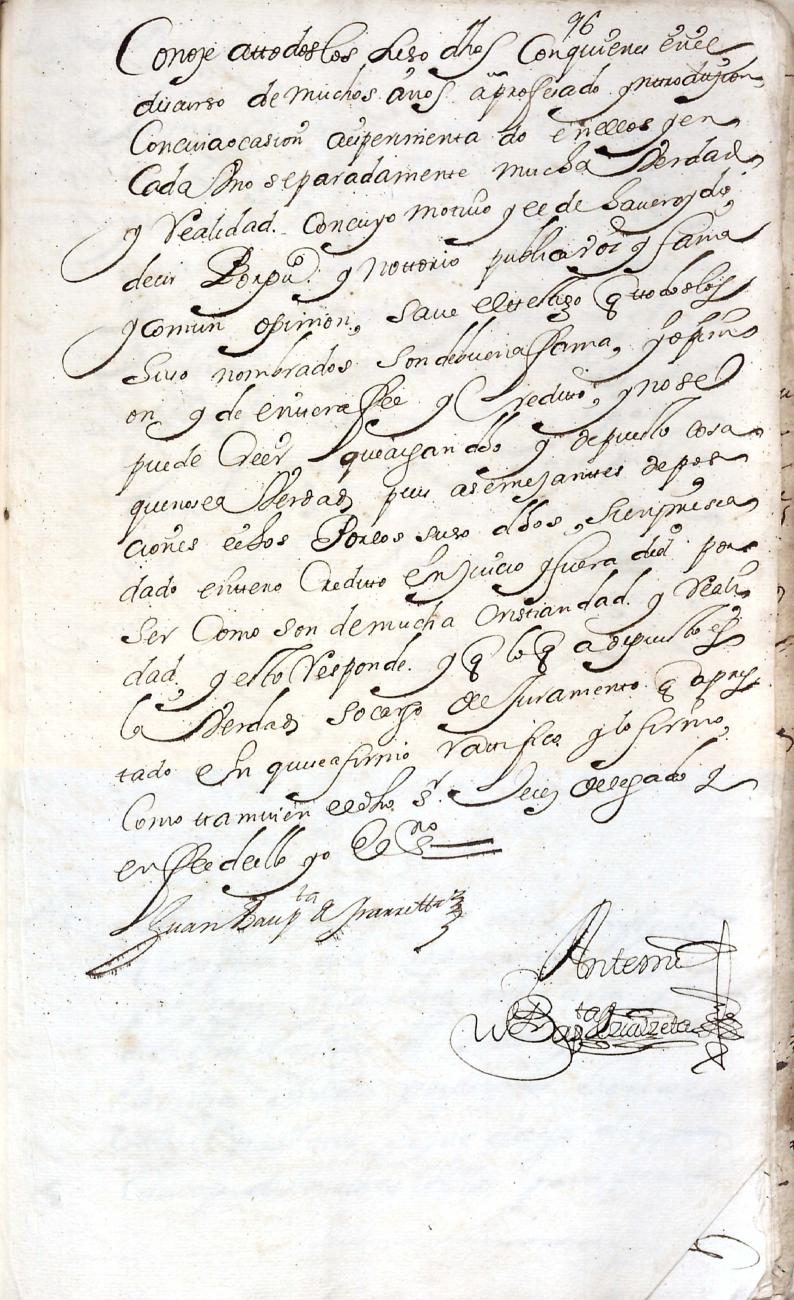 96
Conoze attodos los suso dhos Con quienes en el
discurso de muchos años a profesado yntroduzion,
Con cuia ocasion a esperimentado en ellos y en
Cada Uno separadamente mucha Verdad
y realidad. Con cuyo motiuo y el de hauer oydo
decir Por pu.co y nottorio publica voz y fama
y comun opinion, saue el testigo q todos los
suso nombrados son de buena fama, y opini
on y de entera ffee y Credito, y no se
puede Creer que aigan dho y depuesto cosa
que no sea Verdad pues a semejantes depos
ciones echos Por los suso dhos, siempre se a
dado entero Credito en Juicio y fuera del por
ser Como son de mucha Cristiandad y reali
dad, y esto responde. y q lo q a depuesto es
la Verdad so cargo del Juramento q a pres
tado en que se afirmo ratifico y lo firmo,
Como ttamuien el dho s.r Juez delegado y
en ffee de ello yo el Es.no
Juan Baup.ta de
Antemi
Bap.ta de